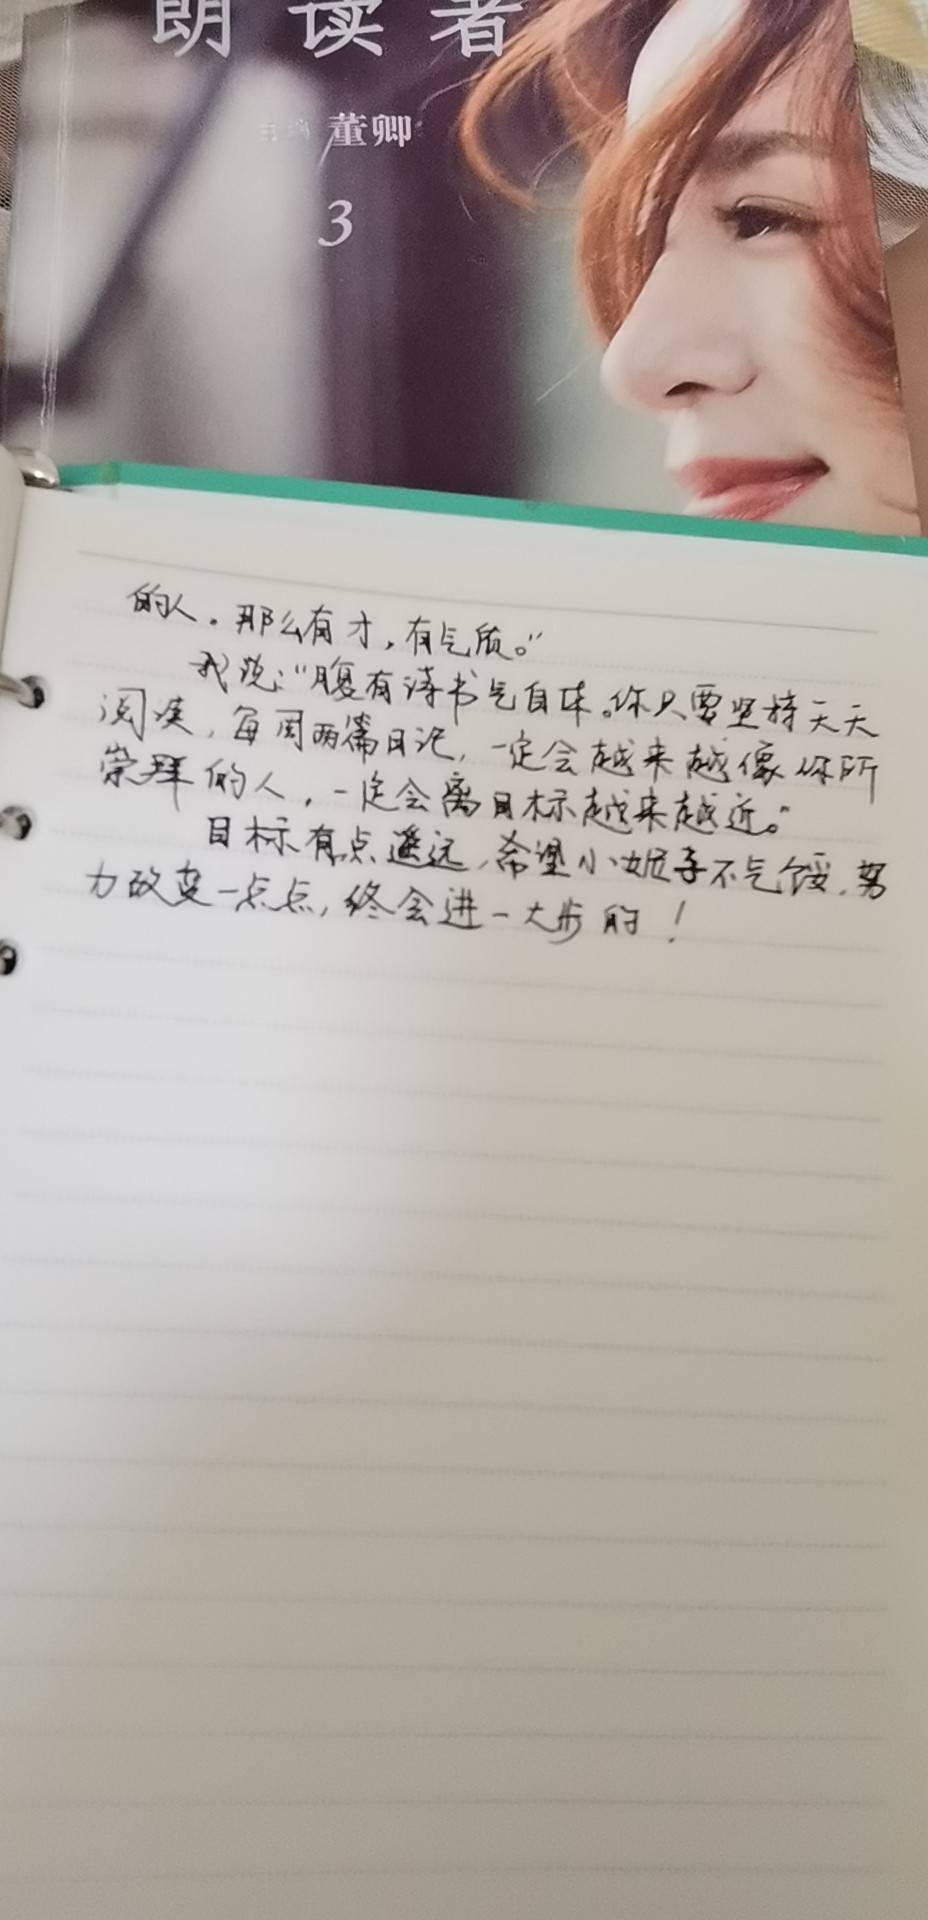 朗读者
主编 董卿
3
的人。那么有才，有气质。”
我说：“腹有诗书气自华。你只要坚持天天
阅读，每周两篇日记，一定会越来越像你所
崇拜的人，一定会离目标越来越近。”
目标有点遥远，希望小妮子不气馁，努
力改变一点点，终会进一大步的！